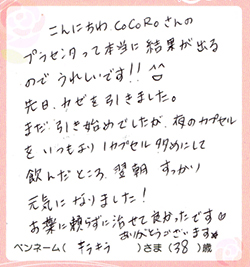 こんにちわ CoCoRoさんの
プラセンタって本当に結果が出る
のでうれしいです!! ^^
先日、カゼを引きました。
まだ引き始めでしたが、夜のカプセル
をいつもより1カプセル多めにして
飲んだところ、翌朝 すっかり
元気になりました!
お薬に頼らずに治せて良かったです♡
ありがとうございます★
ペンネーム( キラキラ )さま (38) 歳